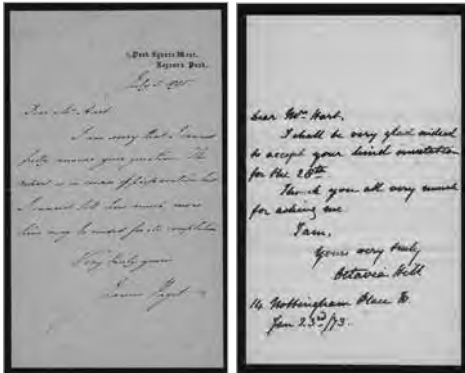 Park Square West,
Regent's Park.
July 1885
Dear Mr. Hart
I am sorry that I cannot
fully answer your question. The
report is in course of preparation but
I cannot tell how much more
time may be needed for its completion
Very truly yours
James Paget
Dear Mrs. Hart,
I shall be very glad indeed
to accept your kind invitation
for the 28th
Thank you all very much
for asking me
I am,
Yours very truly
Octavia Hill
14 Nottingham Place W.
Jan 23rd/73.